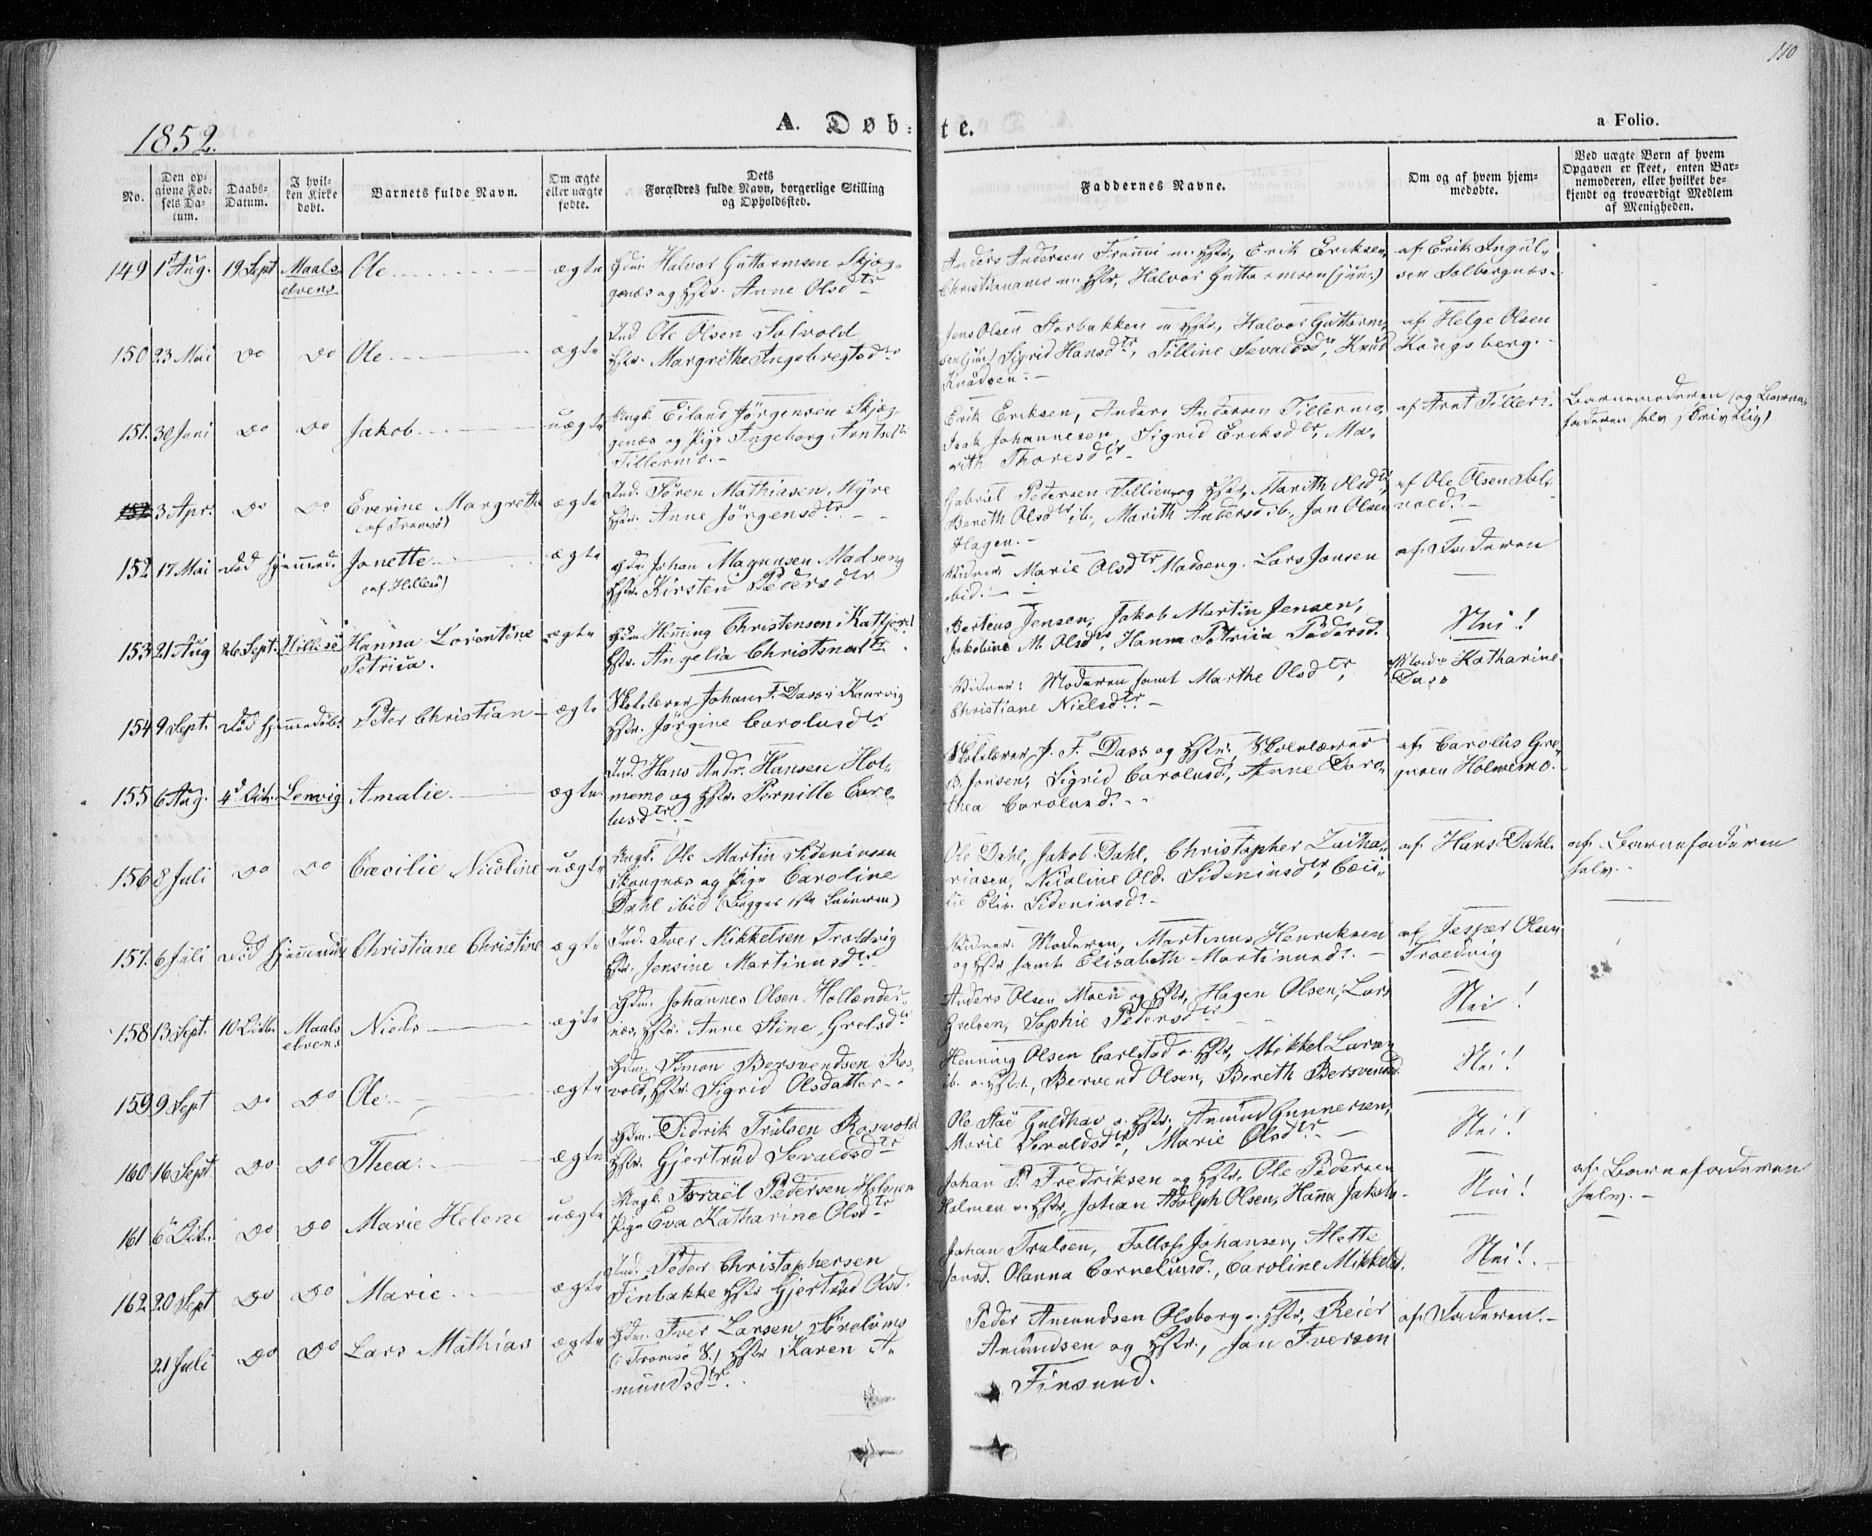 110
1852.
A. Døbte.
a Folio.
No.
Den opgivne Fødsels Datum.
Daabs-Datum.
I hvilken Kirke døbt.
Barnets fulde Navn.
Om ægte eller uægte fødte.
Dets Forældres fulde Navn, borgerlige Stilling og Opholdssted.
Faddernes Navne.
Om og af hvem hjemmedøbte.
Ved uægte Børn af hvem Opgaven er skeet, enten Barnemoderen, eller hvilket bekjendt og troværdigt Medlem af Menigheden.
149 1st Aug. 19 Sept Maalselvens Ole ægte
Gdm. Halvor Guttormsen Skjæggenæs og Hstr. Anne Olsdtr
Anders Andersen Fronni m: Hstr, Erik Eriksen
m: Hstr, Halvor Guttormsen (jun:)
af Erik Ingulsen Solbergnæs
150 23 Mai do do Ole ægte
Ind Ole Olsen Solvold
Hstr. Margrethe Ingebregtsdtr
Jens Olsen Storbakken m Hstr, Halvor Guttormsen (jun) Sigrid Hansdtr, Olline Sevaldsd, Knud Knudsen.
af Helge Olsen Kongsberg.
151. 30 Juni do do Jakob uægte
Ungk. Eiland Jörgensen Skjæggenæs og Pige Ingeborg Arntsdtr Tillermo.
Erik Eriksen, Anders Andersen Tillermo, Isak Johannesen, Sigrid Eriksdtr, Marith Thoresdtr
af Arnt Tilleri.
Barnemoderen (og Barnefaderen selv skrivtlig)
152 3 Apr: do do Everine Margrethe (af Tromsö) ægte
Ind. Sören Mathiasen Myre
Hstr. Anne Jörgensdtr
Gabriel Pedersen Sollien og Hstr, Marith Olsdtr, Bereth Olsdtr ib, Marith Andersd ib. Jon Olsen Hagen.
af Ole Olsen Solvold.
152 17 Mai död Hjemmed. Jonette (af Hillesö) ægte
Gdm Johan Magnusen Madseng
Hstr. Kirsten Pedersdtr
Vidner: Marie Olsdtr Madseng. Lars Jonsen ibid.
af Faderen
153 21 Aug 26 Sept. Hillesö Hanna Lorentine Petrica. ægte
Gdm Henning Christensen i Katfjord
Hstr. Angelia Christensdtr.
Berteus Jensen, Jakob Martin Jensen, Jakobine M. Olsd, Hanna Petricia Pedersd.
Nei!
154 9 Sept. död Hjemmedöbt Peter Christian ægte
Skolelærer Johan F. Dass i Kaarvig
Hstr. Jörgine Carolusdtr
Vidner: Moderen samt Marthe Olsdtr, Christiane Nielsdtr.
Katharine Dass
155 6 Aug. 4d Oct. Lenvig Amalie ægte
Ind. Hans Andr. Hansen Holmemo og Hstr. Pernille Carolusdtr.
Skolelærer J. F. Dass og Hstr, Skolelærer B. Jensen, Sigrid Carolusd, Anne Dorothea Carolusd.
af Carolus Holmemo.
156 8 Juli do do Cæcilie Nicoline uægte
Ungk. Ole Martin Sideniusen Kongnæs og Pige Caroline Dahl ibid (Begges 1ste Leiermaal)
Ole Dahl, Jakob Dahl, Christopher Zachariasen, Nicoline Old. Sideniusdtr, Cæcilie Elis. Sideniusd.
af Hans Dahl.
af Barnefaderen selv.
157. 6 Juli död Hjemmedöbt Christiane Christine ægte
Ind. Iver Mikkelsen Troldvig
Hstr. Jensine Martinusdtr
Vidner: Moderen, Martinus Henriksen og Hstr samt Elisabeth Martinusd.
af Jesper Olsen Troldvig
158 13 Sept. 10 Octbr Maalselvens Niels ægte
Gdm. Johannes Olsen Hollendernæs, Hstr. Anne Stine Grelsdtr
Anders Olsen Moen og Hstr, Hagen Olsen, Lars Grelsen, Sophie Pedersdtr
Nei!
159 9 Sept do do Ole ægte
Gdm. Simon Bersvendsen Rosvold, Hstr. Sigrid Olsdatter
Henning Olsen Carlstad o. Hstr, Mikkel Larsen ib. o. Hstr., Bersvend Olsen, Bereth Bersvendsd
Nei!
160 16 Sept do do Thea ægte
Gdm. Didrik Trulsen Rosvold
Hstr. Gjertrud Sevaldsdtr
Ole Guldhav o. Hstr. Amund Gunnersen, Marie Sevaldsdtr, Marie Olsdtr
Nei!
161 6 Oct. do do Marie Helene uægte
Ungk. Israël Pedersen Holmen
Pige Eva Katharine Olsdtr
Johan P. Fredriksen og Hstr. Ole Pedersen Holmen o. Hstr, Johan Adolph Olsen, Hanna Jakobs
Nei!
af Barnefaderen selv.
162. 20 Sept do do Marie ægte
Ind. Peder Christophersen
Finbakke Hstr Gjertrud Olsd.
Johan Trulsen, Tollef Johansen, Mette Jonsd. Olanna Corneliusd., Caroline Mikkelsd.
Nei!
21 Juli do do Lars Mathias ægte
Gdm. Iver Larsen
(i Tromsö S.) Hstr Karen Amundsdtr.
Peder Amundsen Olsborg o. Hstr, Reier Amundsen og Hstr., Jon Iversen Finsund.
af Faderen.